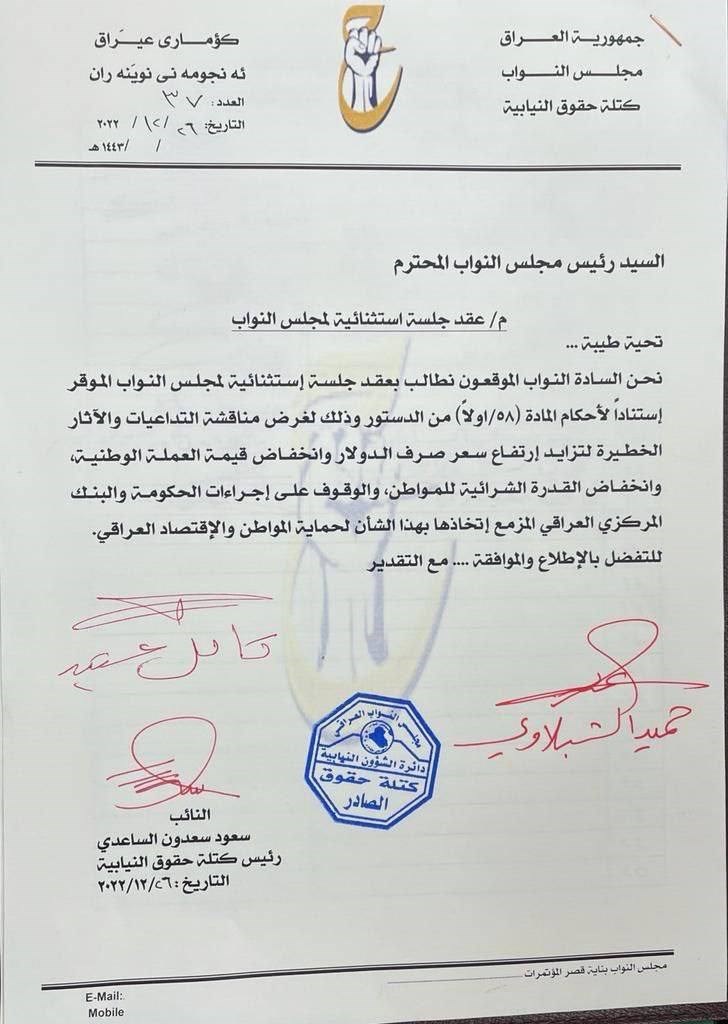 جمهورية العراق
مجلس النواب
كتلة حقوق النيابية
كۆماری عیێراق
ئه نجومه نی نوێنه ران
العدد: ٣٧
التاريخ: ٢٦/ ١٢/ ٢٠٢٢
/ /١٤٤٣هـ
السيد رئيس مجلس النواب المحترم
م/ عقد جلسة استثنائية لمجلس النواب
تحية طيبة ...
نحن السادة النواب الموقعون نطالب بعقد جلسة إستثنائية لمجلس النواب الموقر
إستناداً لأحكام المادة (٥٨/اولاً) من الدستور وذلك لغرض مناقشة التداعيات والآثار
الخطيرة لتزايد إرتفاع سعر صرف الدولار وانخفاض قيمة العملة الوطنية،
وانخفاض القدرة الشرائية للمواطن، والوقوف على إجراءات الحكومة والبنك
المركزي العراقي المزمع إتخاذها بهذا الشأن لحماية المواطن والإقتصاد العراقي.
للتفضل بالإطلاع والموافقة .... مع التقدير
حميد الشبلاوي
كامل
مجلس النواب العراقي
دائرة الشؤون النيابية
كتلة حقوق
الصادر
النائب
سعود سعدون الساعدي
رئيس كتلة حقوق النيابية
التاريخ: ٢٠٢٢/١٢/٢٦
مجلس النواب بناية قصر المؤتمرات
E-Mail:
Mobile